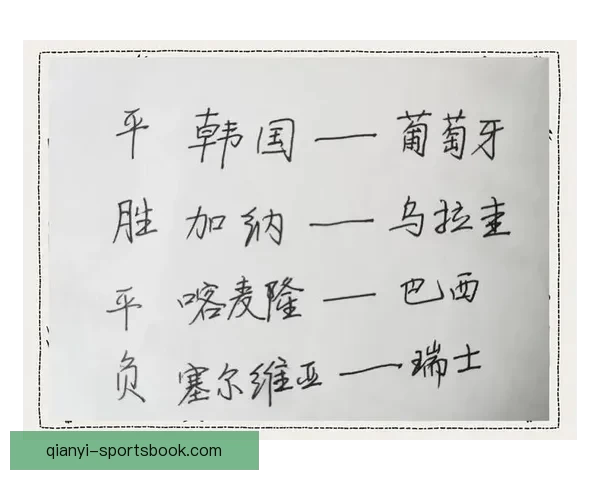 平 韩国 — 葡萄牙
胜 加纳 — 乌拉圭
平 喀麦隆 — 巴西
负 塞尔维亚 — 瑞士
qianyi-sportsbook.com